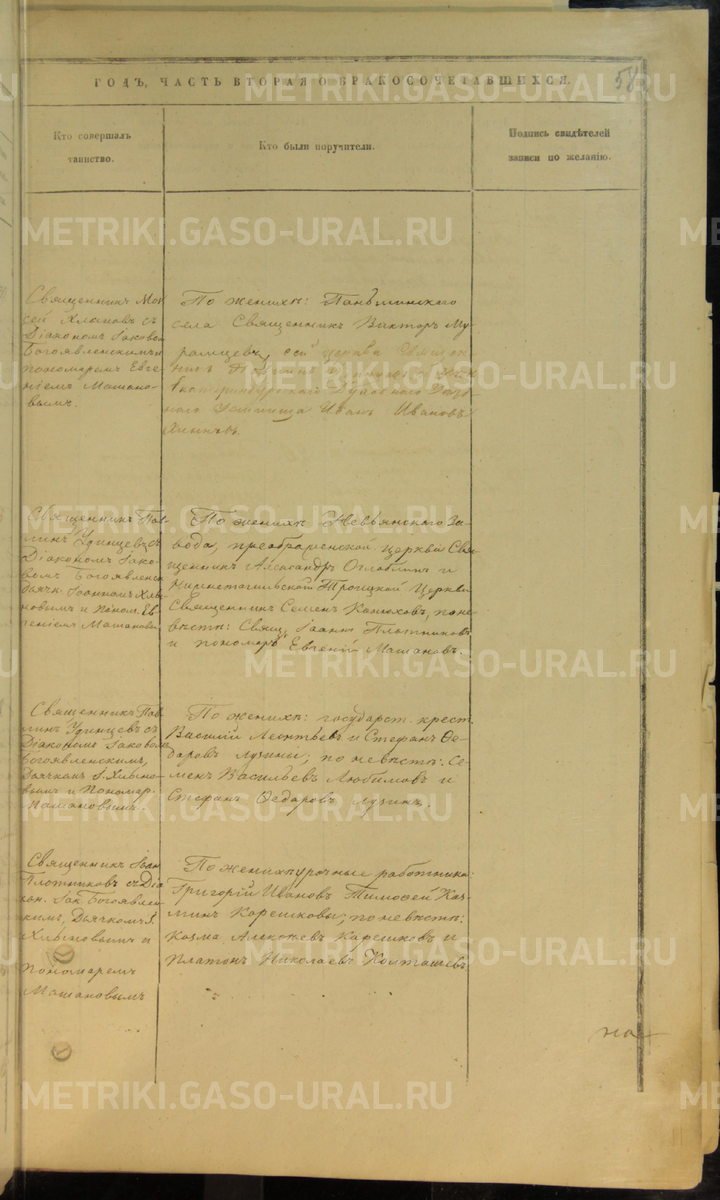 ГОДЪ, ЧАСТЬ ВТОРАЯ О БРАКОСОЧЕТАВШИХСЯ.
58
Кто совершалъ
таинство.
Кто были поручители.
Подпись свидѣтелей
записи по желанію.
Священникъ Мои
сей Хлыновъ съ
Діакономъ Іаковом
Богоявленскимъ и
пономаремъ Евге
ніемъ Машано-
вымъ.
По женихѣ: Паньшинскаго
села Священникъ Викторъ Му
ромцевъ, сей церкви Священ
никъ
Екатеринбургскаго Духовнаго Уѣзд
наго Училища Иванъ Ивановъ
Священникъ Пав
линъ Удинцевъ съ
Діакономъ Іако-
вомъ Богоявленск
дьячк. Іоанномъ Хлы
новымъ и Поном. Ев
геніемъ Машановы
По женихѣ Невьянскаго За-
вода, преображенской Церкви Свя
щенникъ Александръ Оглоблинъ и
Нижнетагильской Троицкой Церкви
Священникъ Семенъ Конюховъ, по не
вѣстѣ: Свящ. Іоаннъ Плотниковъ
и пономарь Евгеній Машановъ.
Священникъ Пав
линъ Удинцевъ съ
Діакономъ Іаковом
Богоявленскимъ,
Дьячкомъ І. Хлыно-
вымъ и Пономар.
Машановымъ.
По женихѣ: государст. крест.
Василій Леонтьевъ и Стефанъ Ѳе-
доровъ Лузины, по невѣстѣ: Се-
менъ Васильевъ Любимовъ и
Стефанъ Ѳедоровъ Лузинъ.
Священникъ Іоан
Плотниковъ съ Діа
кон. Іак Богоявлен
скимъ, Дьячкомъ І.
Хлыновымъ и
Пономаремъ
Машановымъ
По женихѣ урочные работники:
Григорій Ивановъ Тимофей Коз-
минъ Карешковы, по невѣстѣ:
Козма Алексѣевъ Карешковъ и
Платонъ Николаевъ Колташевъ
на
METRIKI.GASO-URAL.RU